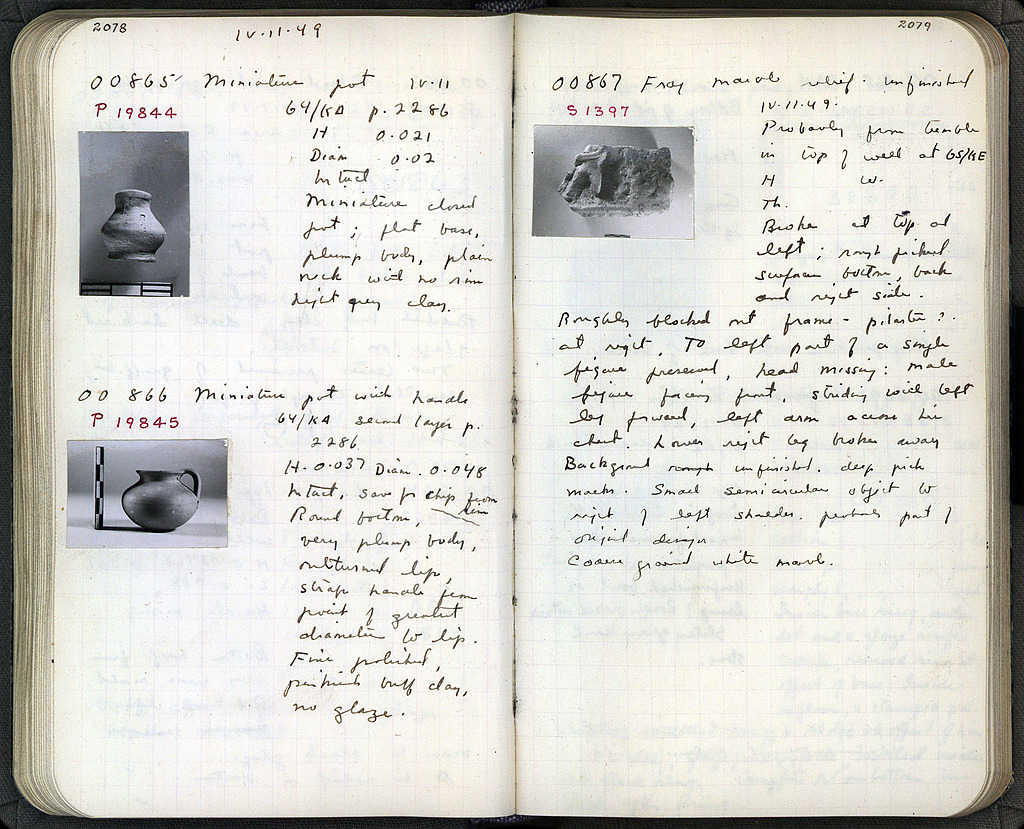 2078
IV·11·49
00865 Miniature pot IV·11
P 19844
64/KA p. 2286
H 0.021
Diam 0.02
Intact
Miniature closed
pot; flat base,
plump body, plain
neck with no rim
Light grey clay.
00 866 Miniature pot with handle
P 19845
64/KA second layer p.
2286
H. 0.037 Diam. 0.048
Intact, save for chip from
rim
Round bottom,
very plump body,
outturned lip,
strap handle from
point of greatest
diameter to lip.
Fine polished,
pinkish buff clay,
no glaze.
2079
00867 Frag marble relief unfinished
S 1397
IV·11·49·
Probably from tumble
in top of well at 65/KE
H W.
Th.
Broken at top at
left; rough picked
surfaces bottom, back
and right side.
Roughly blocked out frame - pilaster?.
at right. To left part of a single
figure preserved, head missing: male
figure facing front, striding with left
leg forward, left arm across his
chest. Lower right leg broken away
Background rough unfinished. deep pick
marks. Small semicircular object to
right of left shoulder. probably part of
original design
Coarse grained white marb.